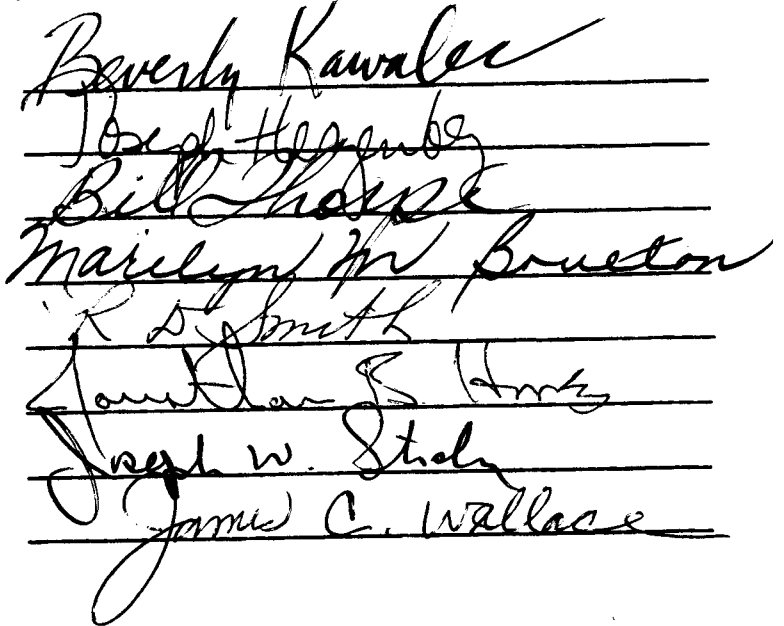 Beverly Kawalec
Joseph Herzenberg
Bill Thorpe
Marilyn M
R D Smith
Jonathan B Howes
Joseph W.
James C. Wallace